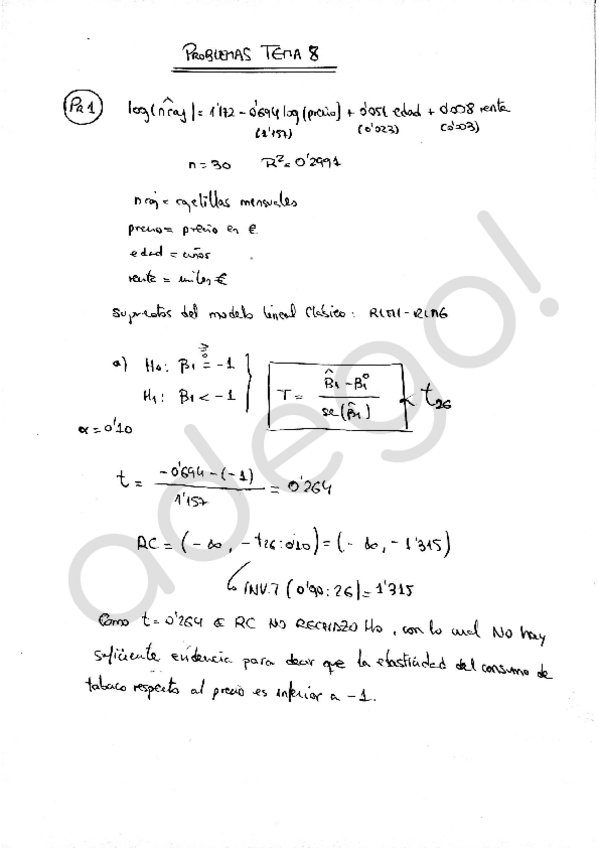 PROBLEMAS TEMA 8
PR1 log(n̂caj)= 1'172 - 0'694 log(precio) + 0'051 edad + 0'008 renta
(1'157) (0'023) (0'003)
n=30 R²=0'2991
ncaj = cajetillas mensuales
precio = precio en €
edad = años
renta = miles €
Supuestos del modelo lineal Clásico: RLM1-RLM6
a) H₀: β₁ = -1
≥
H₁: β₁ < -1
T = (β̂₁ - β₁⁰) / se(β̂₁) t₂₆
α=0'10
t = (-0'694-(-1)) / 1'157 = 0'264
RC = (-∞, -t26:0'10) = (-∞, -1'315)
INV.T (0'90:26) = 1'315
Como t=0'264 ∉ RC NO RECHAZO H₀, con lo cual NO hay
suficiente evidencia para decir que la elasticidad del consumo de
tabaco respecto al precio es inferior a -1.
adego!